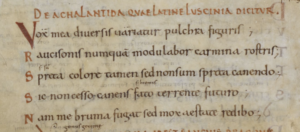 DE ACHALANTIDA QUAE LATINE LUSCINIA DICITUR
Vox mea diversis variatur pulchra figuris;
Raucisonis numquam modulabor carmina rostris;
Spreta colore tamen sed non sum spreta canendo;
Sic non cesso canens fato terrente futuro;
Nam me bruma fugat sed mox aestate redibo;